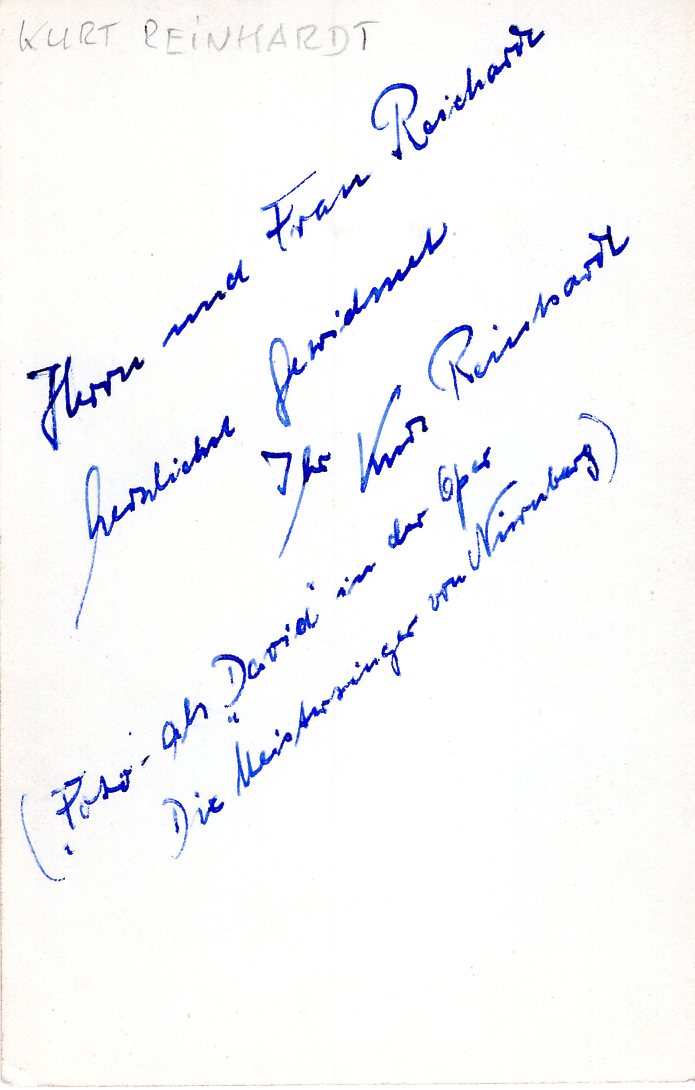 KURT REINHARDT
Herrn und Frau Reichardt
herzlichst gewidmet
Ihr Kurt Reinhardt
(Foto - als „David" in der Oper
Die Meistersinger von Nürnberg)